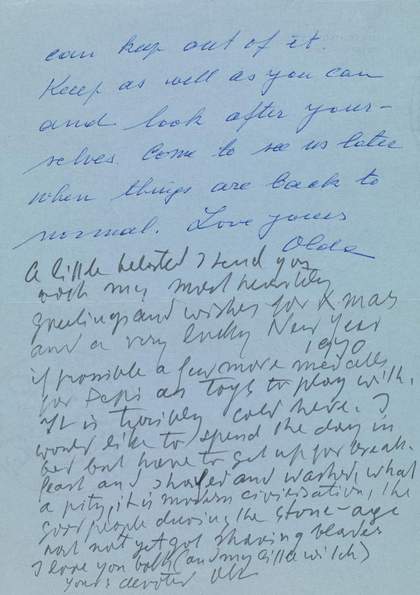 can keep out of it.
Keep as well as you can
and look after your-
selves. Come to see us later
when things are back to
normal. Love yours
Olda
A little belated I send you
with my most heartily
greetings and wishes for X-mas
and a very lucky New Year
1970
if possible a few more medals
for Pepi as toys to play with.
It is terribly cold here. I
would like to spend the day in
bed but have to get up for break-
fast and shaved and washed, what
a pity, it is modern civilisation, the
good people during the stone-age
had not yet got shaving blades
I love you both (and my little witch)
yours devoted